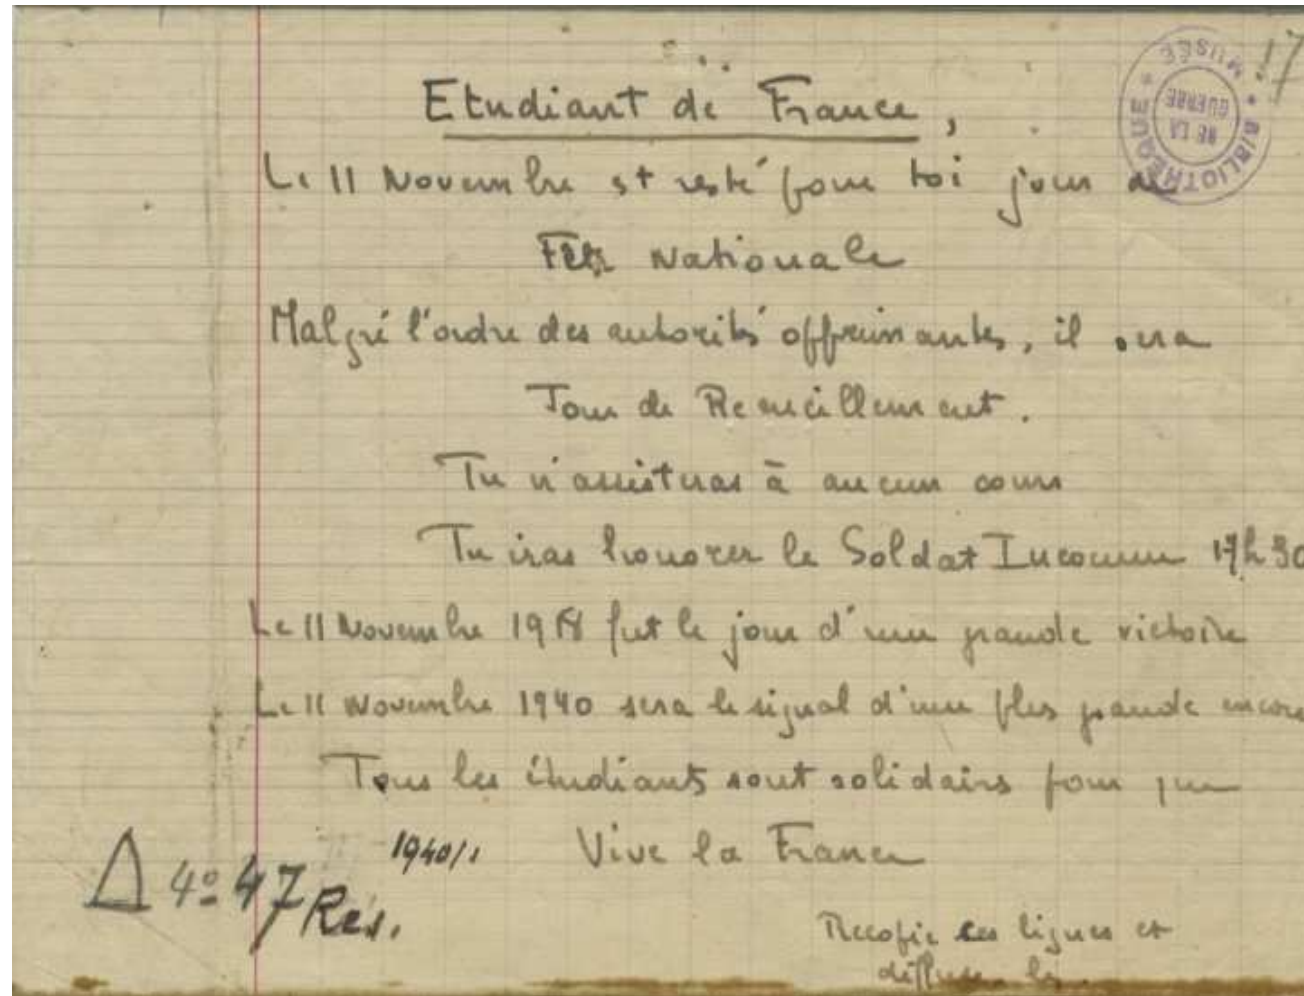 17
MUSÉE * BIBLIOTHÈQUE *
DE LA
GUERRE
Etudiant de France,
Le 11 Novembre est resté pour toi jour de
Fête Nationale
Malgré l'ordre des autorités opprimantes, il sera
Jour de Recueillement.
Tu n'assisteras à aucun cours
Tu iras honorer le Soldat Inconnu 17h 30
Le 11 Novembre 1918 fut le jour d'une grande victoire
Le 11 Novembre 1940 sera le signal d'une plus grande encore
Tous les étudiants sont solidaires pour que
Vive la France
1940/1
Δ 4º 47 Res.
Recopie ces lignes et
diffuse les